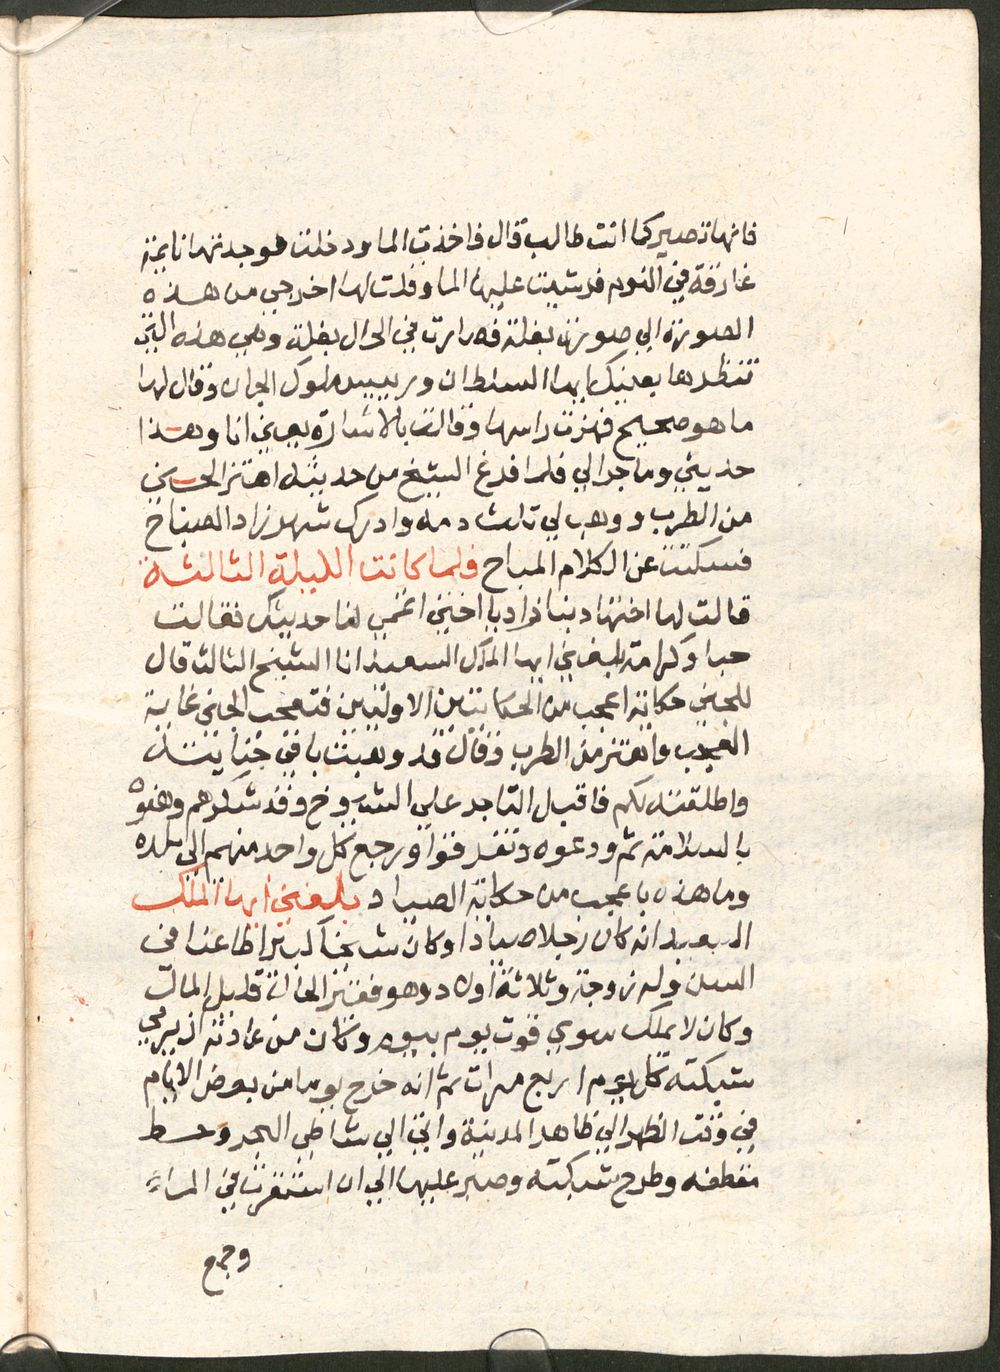 فانها تصير كما انت طالب قال فاخذت الما ودخلت فوجدتها نايمة
غارقة في النوم فرشيت عليها الما وقلت لها اخرجي من هذه
الصورة الي صورة بغلة فصارت في الحال بغلة وهي هذه التي
تنظرها بعينك ايها السلطان وريييس ملوك الجان وقال لها
ما هو صحيح فهزت راسها وقالت بالاشارة يعني انا وهذا
حديثي وما جرالي فلما فرغ الشيخ من حديثه اهتز الجني
من الطرب ووهب لي ثلث دمه وادرك شهرزاد الصباح
فسكتت عن الكلام المباح فلما كانت الليلة الثالثة
قالت لها اختها دينازاد يا اختي اتمي لنا حديثك فقالت
حبا وكرامة بلغني ايها الملك السعيد ان الشيخ الثالث قال
للجني حكاية اعجب من الحكايتين الاولتين فتعجب الجني غاية
العجب واهتز من الطرب وقال قد وهبت باقي جنايته
واطلقته لكم فاقبل التاجر علي الشيوخ وقد شكرهم وهنوه
بالسلامة ثم ودعوه وتفرقوا ورجع كل واحد منهم الي بلده
وما هذه باعجب من حكاية الصياد بلغني ايها الملك
السعيد انه كان رجلا صيادا وكان شيخا كبيرا طاعنا في
السن وله زوجة وثلاثة اولاد وهو فقير الحال قليل المال
وكان لا يملك سوي قوت يوم بيوم وكان من عادته ان يرمي
شبكته كل يوم اربع مرات ثم انه خرج يوما من بعض الايام
في وقت الظهر الي ظاهر المدينة واتي الي شاطي البحر وحط
مقطفه وطرح شبكته وصبر عليها الي ان استقرت في الماء
وجمع